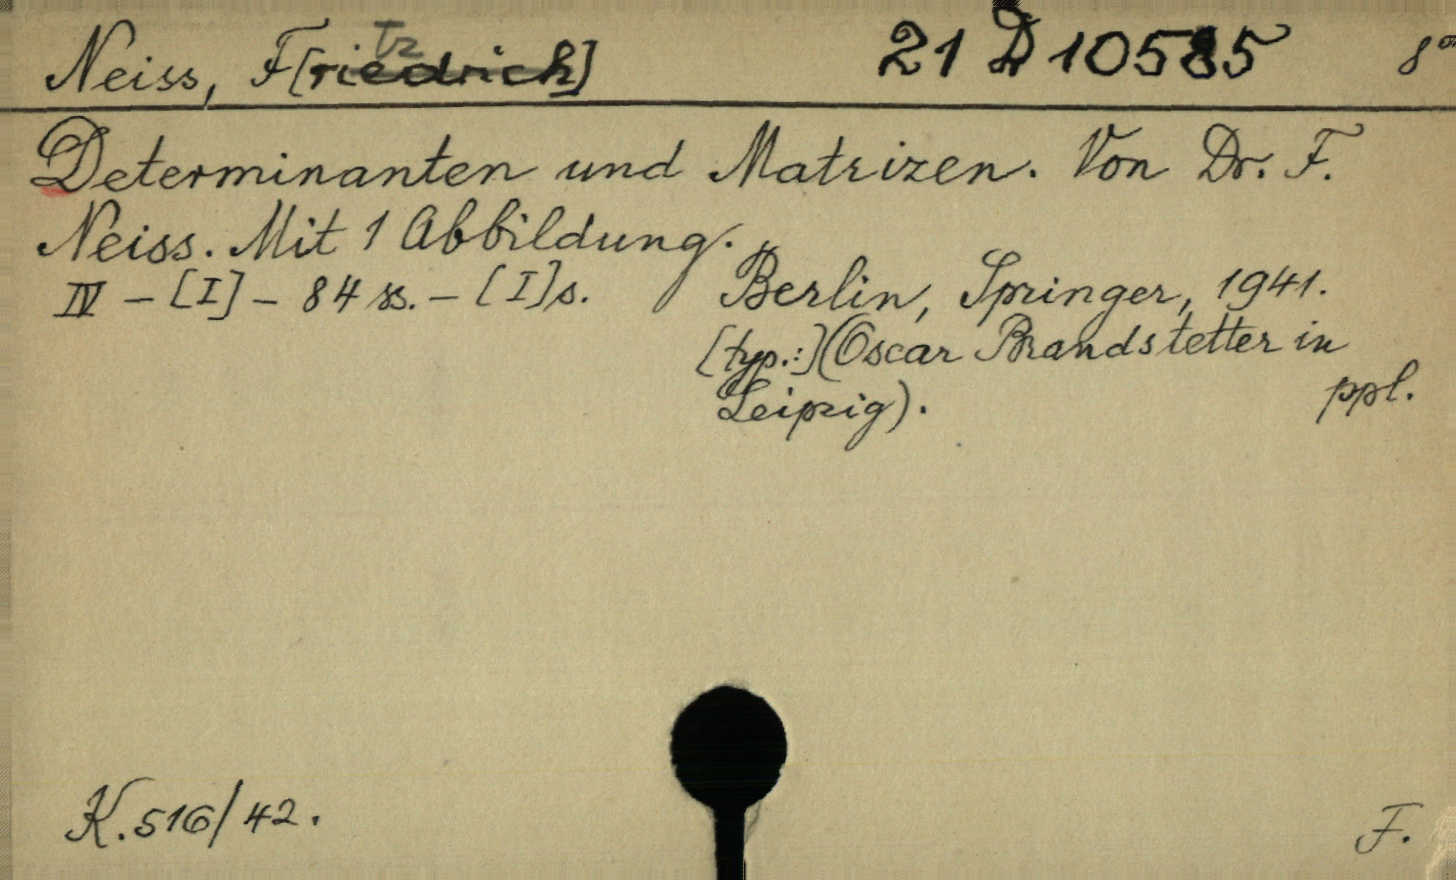 Neiss, F[ritz] 21 D 10585 8°
Determinanten und Matrizen. Von Dr. F.
Neiss. Mit 1 Abbildung.
IV – [I] – 84 ss. – [I]s. Berlin, Springer, 1941.
[typ.:] (Oscar Brandstetter in
Leipzig). ppl.
K.516/42. F.